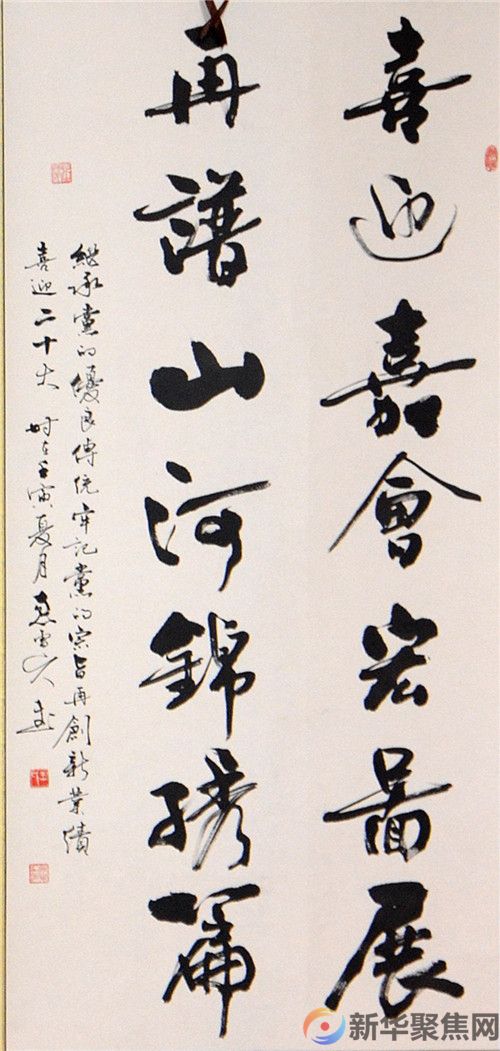 喜迎嘉會宏圖展
再譜山河錦綉篇
繼承黨的優良傳統牢記黨的宗旨再創新業績
喜迎二十大 時在壬寅夏月
新华聚焦网